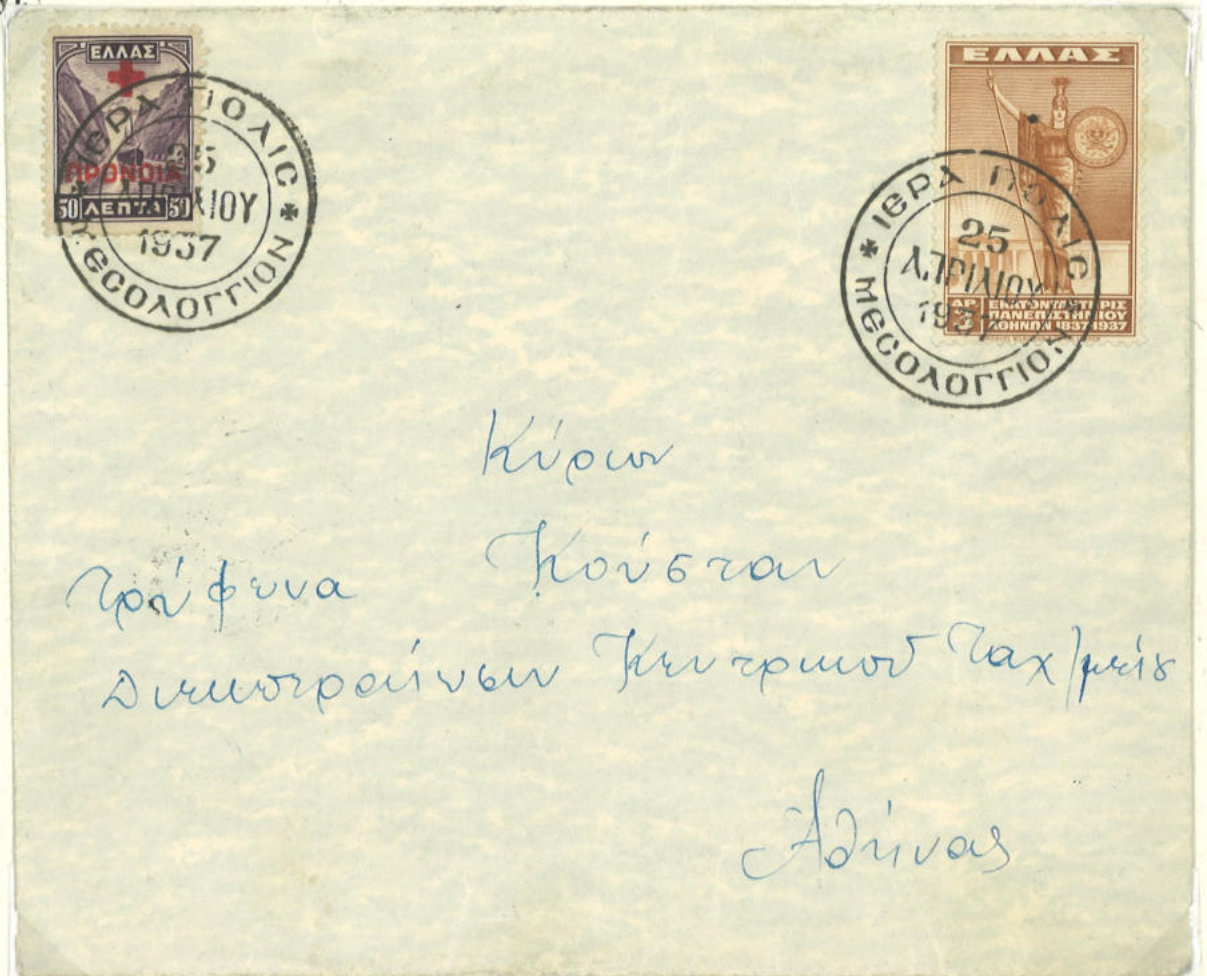 ΕΛΛΑΣ
ΠΡΟΝΟΙΑ
50 ΛΕΠΤΑ 50
ΙΕΡΑ ΠΟΛΙC
25
ΑΠΡΙΛΙΟΥ
1937
ΜΕCΟΛΟΓΓΙΟΝ
ΕΛΛΑΣ
ΔΡ. 3
ΕΚΑΤΟΝΤΑΕΤΗΡΙΣ
ΠΑΝΕΠΙΣΤΗΜΙΟΥ
ΑΘΗΝΩΝ 1837-1937
ΙΕΡΑ ΠΟΛΙC
25
ΑΠΡΙΛΙΟΥ
1937
ΜΕCΟΛΟΓΓΙΟΝ
Κύριον
Κούσταν
Τρύφωνα
Κεντρικού Ταχ/μείου
Αθήνας